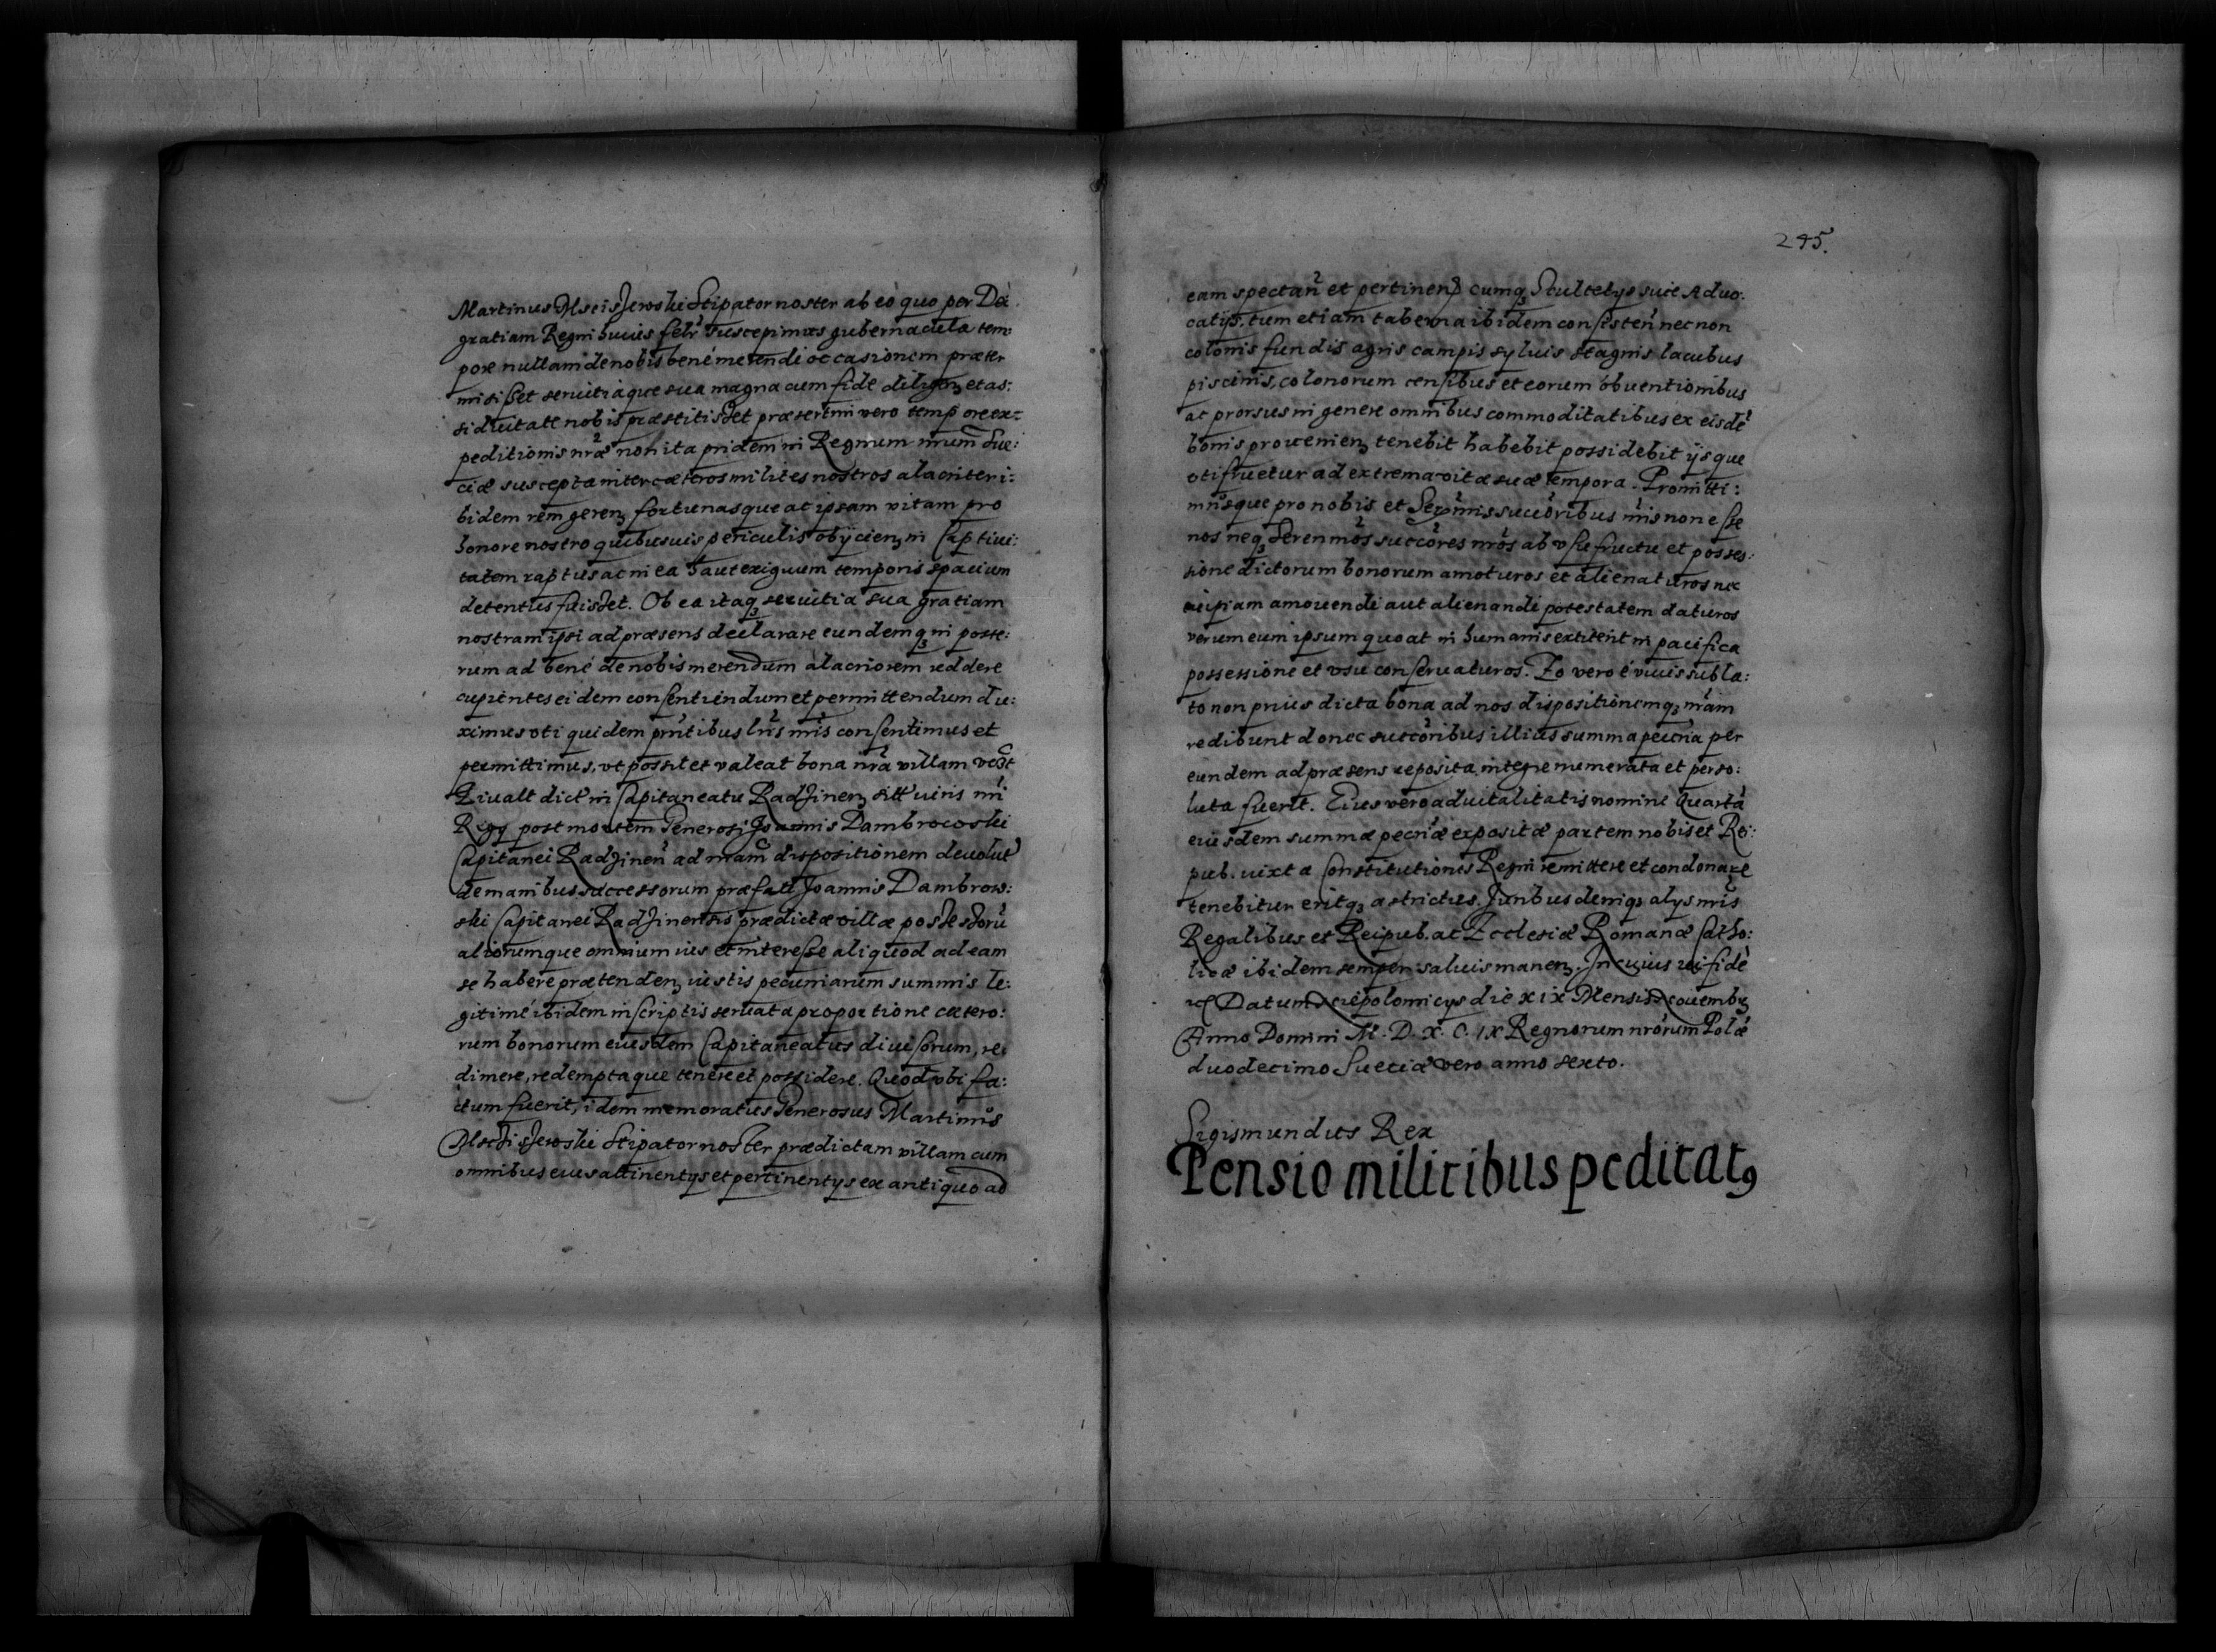 Martinus MscisZewski Stipator noster ab eo quo per Dei
gratiam Regni huius felr suscepimus gubernacula tem
pore nullam de nobis bené merendi occasionem præter
misisset seruitiaque sua magna cum fide diligen3 et as:
siduitate nobis præstitisset præsertim vero tempore ex-
peditionis nræ non ita pridem in Regnum nrum Sue:
ciæ susceptæ inter cæteros milites nostros alacriter i:
bidem rem geren3 fortunasque ac ipsam vitam pro
honore nostro quibusuis periculis obijcien3 in Captiui:
tatem raptus ac in ea haut exiguum temporis spacium
detentus fuisset. Ob ea itaq3 seruitia sua gratiam
nostram ipsi ad præsens declarare eundemq3 in poste:
rum ad bené de nobis merendum alacriorem reddere
cupientes eidem consentiendum et permittendum du:
ximus vti quidem pritibus lris nris consentimus et
permittimus, vt possit et valeat bona nra villam
Ziualt dict in Capitaneatu RadZinen3 sitt
Regy post mortem Generosi Joannis Dambrowski
Capitanei RadZinen ad nram dispositionem deuolut
de manibus successorum præfati Joannis Dambrow:
ski Capitanei RadZinensis prædictæ villæ possessoru
aliorumque omnium ius et interesse aliquod ad eam
se habere prætenden3 iustis pecuniarum summis le:
gitimé ibidem inscriptis seruata proportione cætero:
rum bonorum eiusdem Capitaneatus diuisorum, re:
dimere, redemptaque tenere et possidere. Quod vbi fa:
ctum fuerit, idem memoratus Generosus Martinus
MscZisZewski Stipator noster prædictam villam cum
omnibus eius attinentys et pertinentys ex antiquo ad
245.
eam spectan et pertinen cumq3 Scultetys siue Aduo:
catys, tum etiam taberna ibidem consisten nec non
colonis fundis agris campis syluis stagnis lacubus
piscinis, colonorum censibus et eorum obuentionibus
ac prorsus in genere omnibus commoditatibus ex eisdé
bonis prouenien3 tenebit habebit possidebit ijsque
vtifruetur ad extrema vitæ suæ tempora. Promitti:
musque pro nobis et Sermis succoribus nris non esse
nos neq3 Serenmos succores nros ab vsufructu et posses:
sione dictorum bonorum amoturos et alienaturos nec
cuipiam amouendi aut alienandi potestatem daturos
verum eum ipsum quoat in humanis extiterit in pacifica
possessione et vsu conseruaturos. Eo vero é viuis subla:
to non prius dicta bona ad nos dispositionemq3 nram
redibunt donec succoribus illius summa pecria per
eundem ad præsens reposita integre numerata et perso:
luta fuerit. Eius vero aduitalitatis nomine Quarta
eiusdem summæ pecriæ expositæ partem nobis et Rei:
pub. iuxta Constitutionis Regni remittere et condonare
tenebitur eritq3 astrictus. Juribus deniq3 alys nris
Regalibus et Reipub. ac Ecclesiæ Romanæ Catho:
licæ ibidem semper saluis manen3. In cuius rei fidé
Datum Niepolomicys die xix Mensis Nouembr
Anno Domini M. D. X. C. IX Regnorum nrorum Polæ
duodecimo Sueciæ vero anno sexto.
Sigismundus Rex
Pensio militibus peditat9